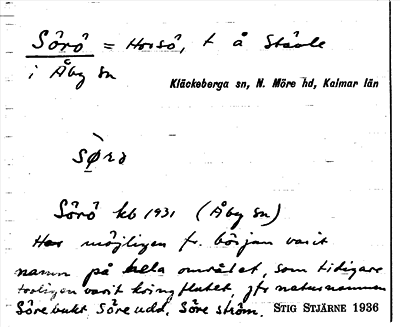 Sörö = Horsö, t å Stävle
i Åby sn
Kläckeberga sn, N. Möre hd, Kalmar län
Sörö kb 1931 (Åby sn)
Har möjligen fr. början varit
namn på hela området, som tidigare
troligen varit kringflutet, jfr naturnamnen
Sörebukt, Söre udd, Söre ström. STIG STJÄRNE 1936